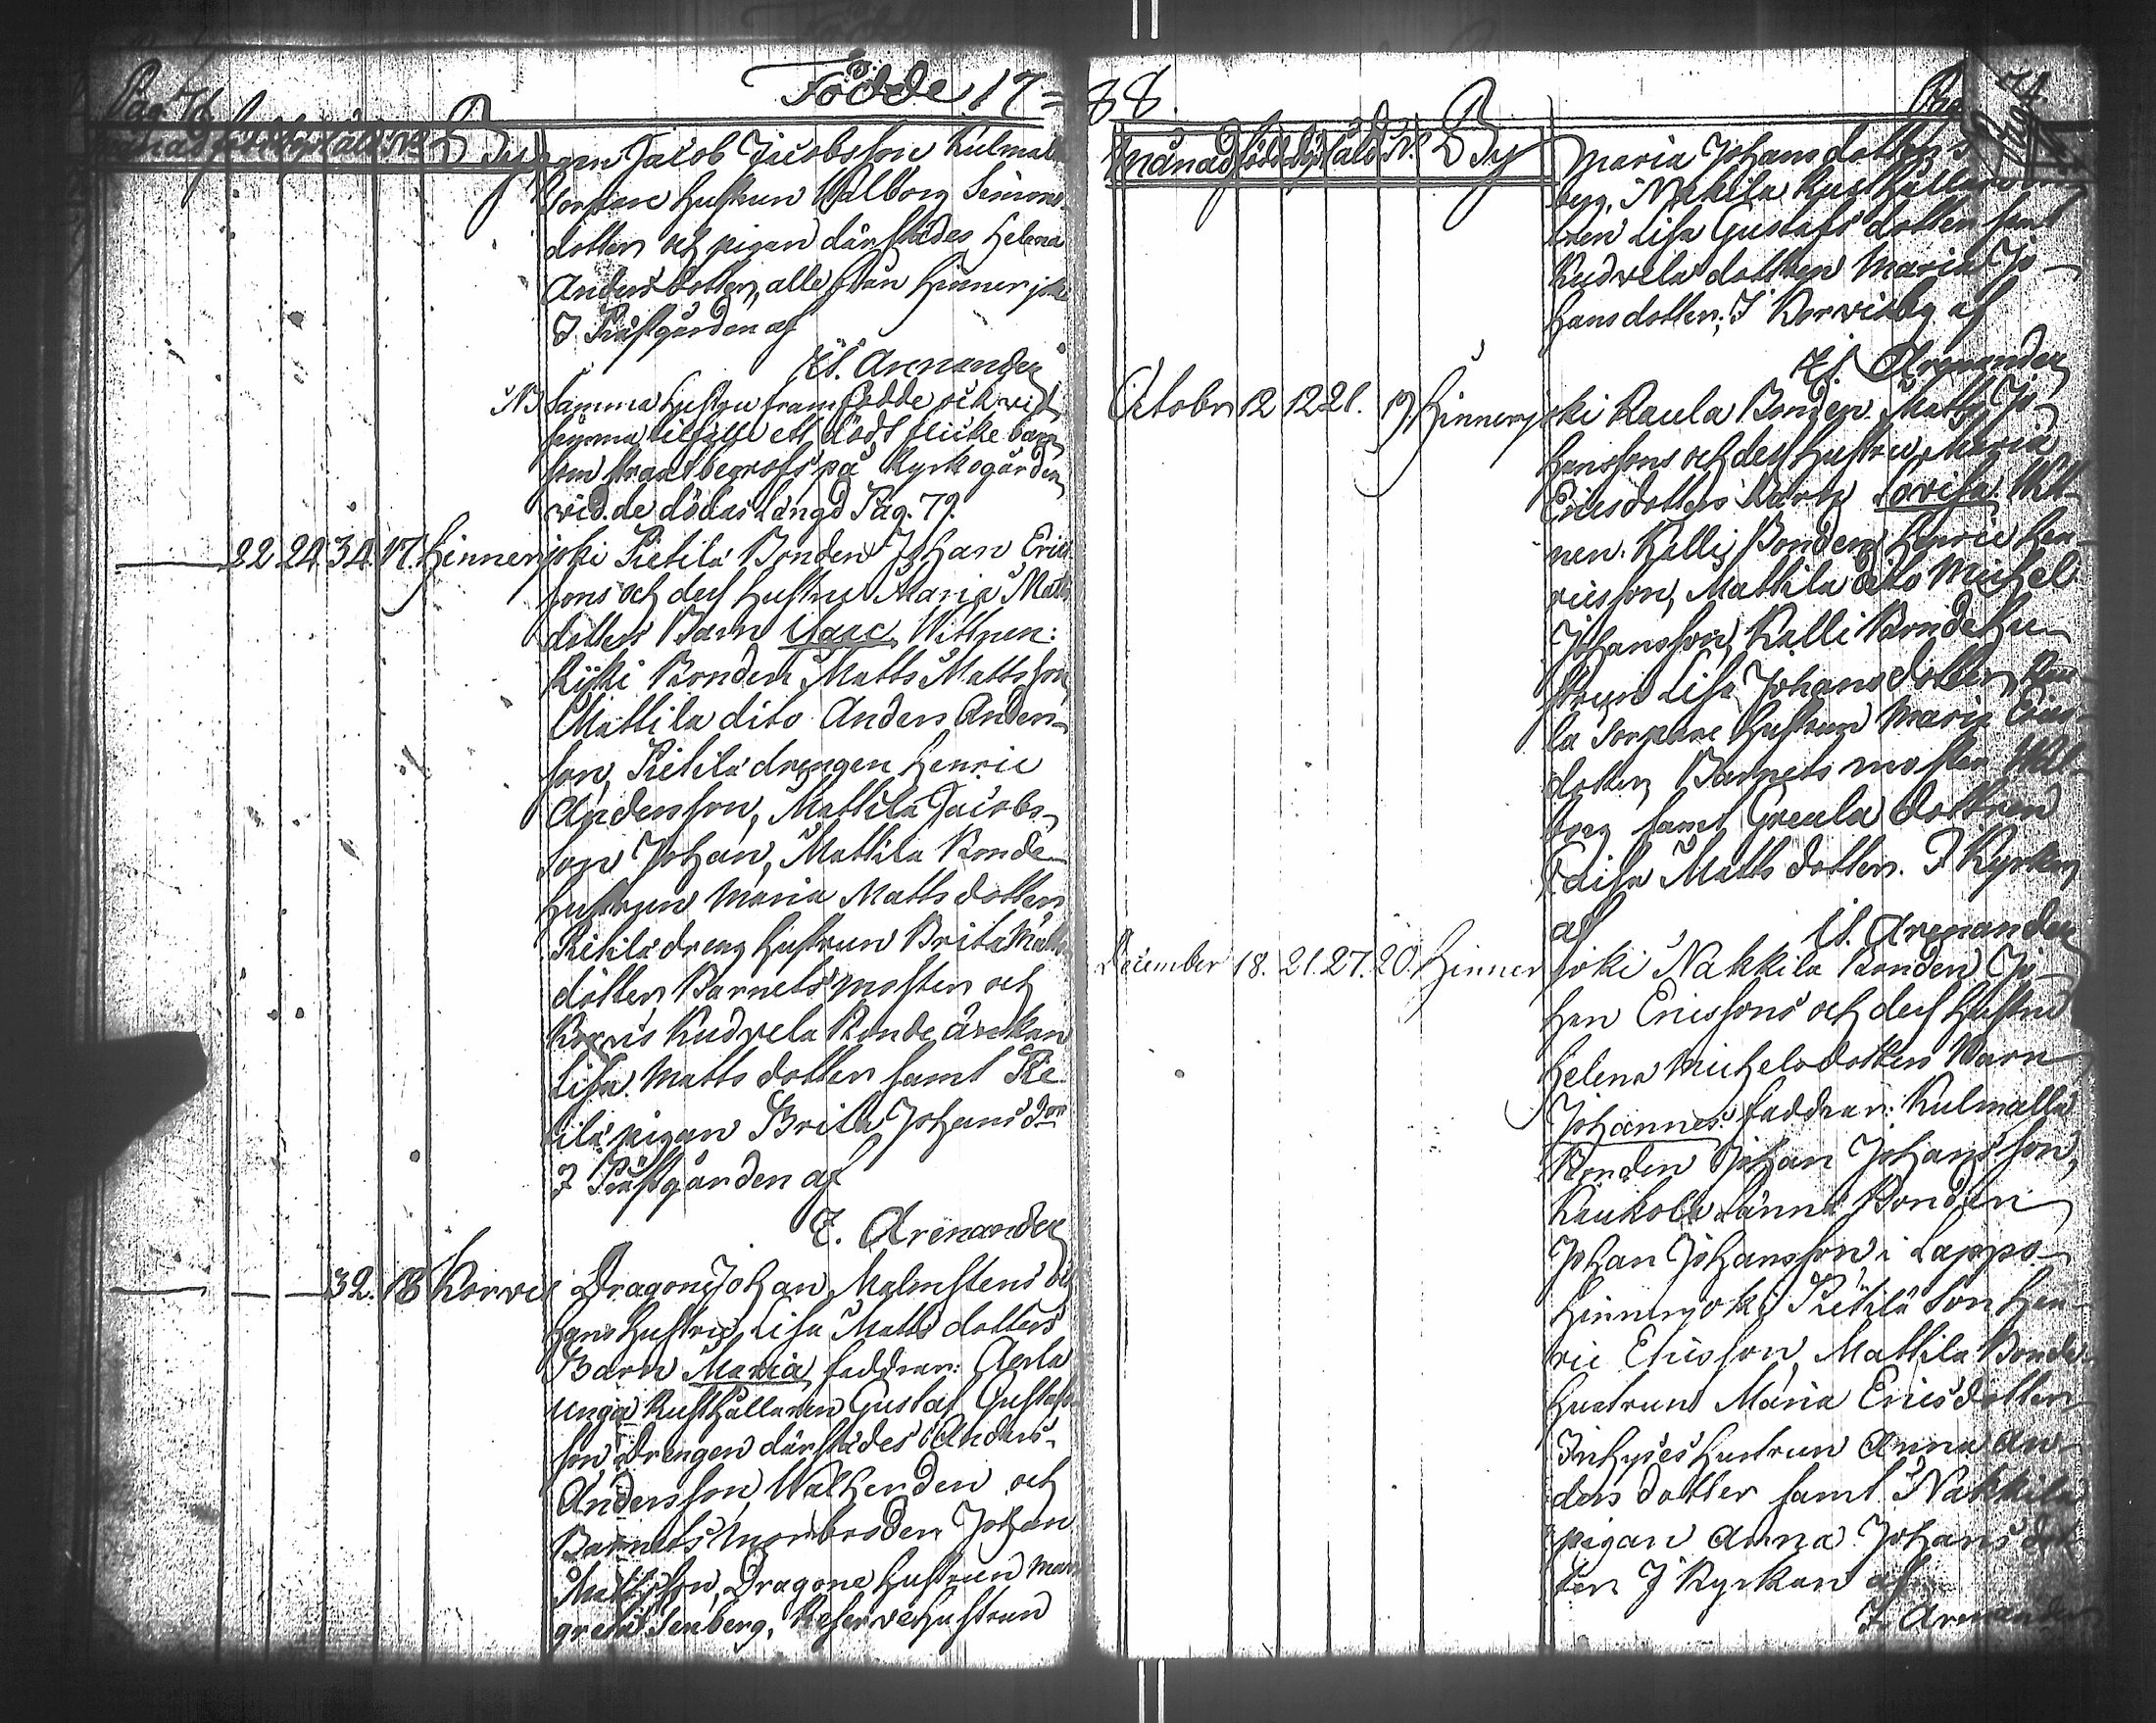 Födde 17=88.
Pag. 74.
By
gen Jacob Jacobsson Kulmala
Sorpare Hustrun Walborg Simons-
dotter och pigan därstädes Helena
Anders dotter, alle från Hinnerjoki
J Prästgården af
Arenander
NB Samma Hustru framfödde ock vid
samma tilfälle ett dödt flicke barn
som strax begrofs på Kyrkogården
vid. de dödas Längd Pag. 79.
22 24 34. 17. Hinnerjoki Pietilä Bonden Johan Erics
sons och dess Hustru Maria Matts
dotters Barn Isaac. Wittnen:
Kyski Bonden Matts Mattsson
Mattila dito Anders Anders-
son, Pietilä drengen Henric
Andersson, Mattila Jacobs-
son Johan, Mattila Bonde
Hustrun Maria Matts dotter
Pietilä dreng Hustrun Brita Matts
dotter, Barnets moster och
Korvis Kudvela Bonde änckan
Lisa Matts dotter samt Pie-
tilä pigan Brita Johans dotter
J Prästgården af
Arenander
32. 18 Korvis Dragon Johan Malmstens och
Hans Hustru Lisa Matts dotters
Barn Maria, faddrar: Aerla
unga Rusthållaren Gustaf Gustafs-
son Drengen därstädes Anders
Andersson Walhenden och
Barnets Morbroder Johan
Mattsson, Dragone Hustrun Mar-
greta Isenberg, Reserve Hustrun
Månad född döpt ålder N. By
Maria Johans dotter
berg, Nakkila Rusthållare
tren Lisa Gustafs dotter samt
Kudvela dottren Maria Jo-
hans dotter; J Korvis by af
Arenander
Octobr 12 12 21. 19 Hinnerjoki Raula Bonden Matts Jo-
hanssons och dess Hustru Maria
Ericsdotters Barn Lovisa. Witt-
nen. Kalli Bonden Henric Hen-
ricsson, Mattila dito Michel
Johansson, Kalli Bonde Hu-
strun Lisa Johans dotter, Rau-
la Sorpare Hustrun Maria Erics
dotter, Barnets moster Wal-
borg samt Greula dottren
Caisa Matts dotter. J Kyrkan
af Arenander
December 18. 21. 27. 20. Hinnerjoki Nakkila Bonden Jo-
han Ericssons och dess Hustru
Helena Michelsdotters Barn
Johannes. faddrar: Kulmala
Bonden Johan Johansson,
Kaukola Länna Bonden
Johan Johansson, i Lappo
Hinnerjoki Pietilä Son Hen-
ric Ericsson, Mattila Bonde
Hustrun Maria Ericsdotter
Inhyses Hustrun Anna An-
ders dotter samt Nakkila
pigan Anna Johans dot-
ter J Kyrkan af
Arenander